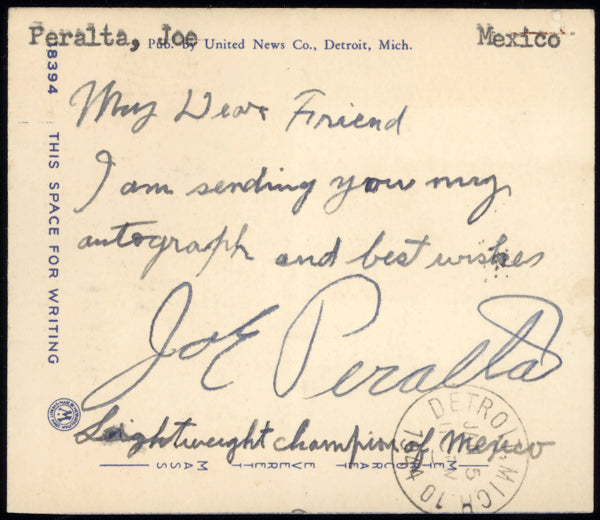 Peralta, Joe
Mexico
Pub. by United News Co., Detroit, Mich.
My Dear Friend
I am sending you my
autograph and best wishes
Joe Peralta
Leightweight champion of Mexico
METROCRAFT EVERETT MASS
8394 THIS SPACE FOR WRITING
DETROIT MICH 10